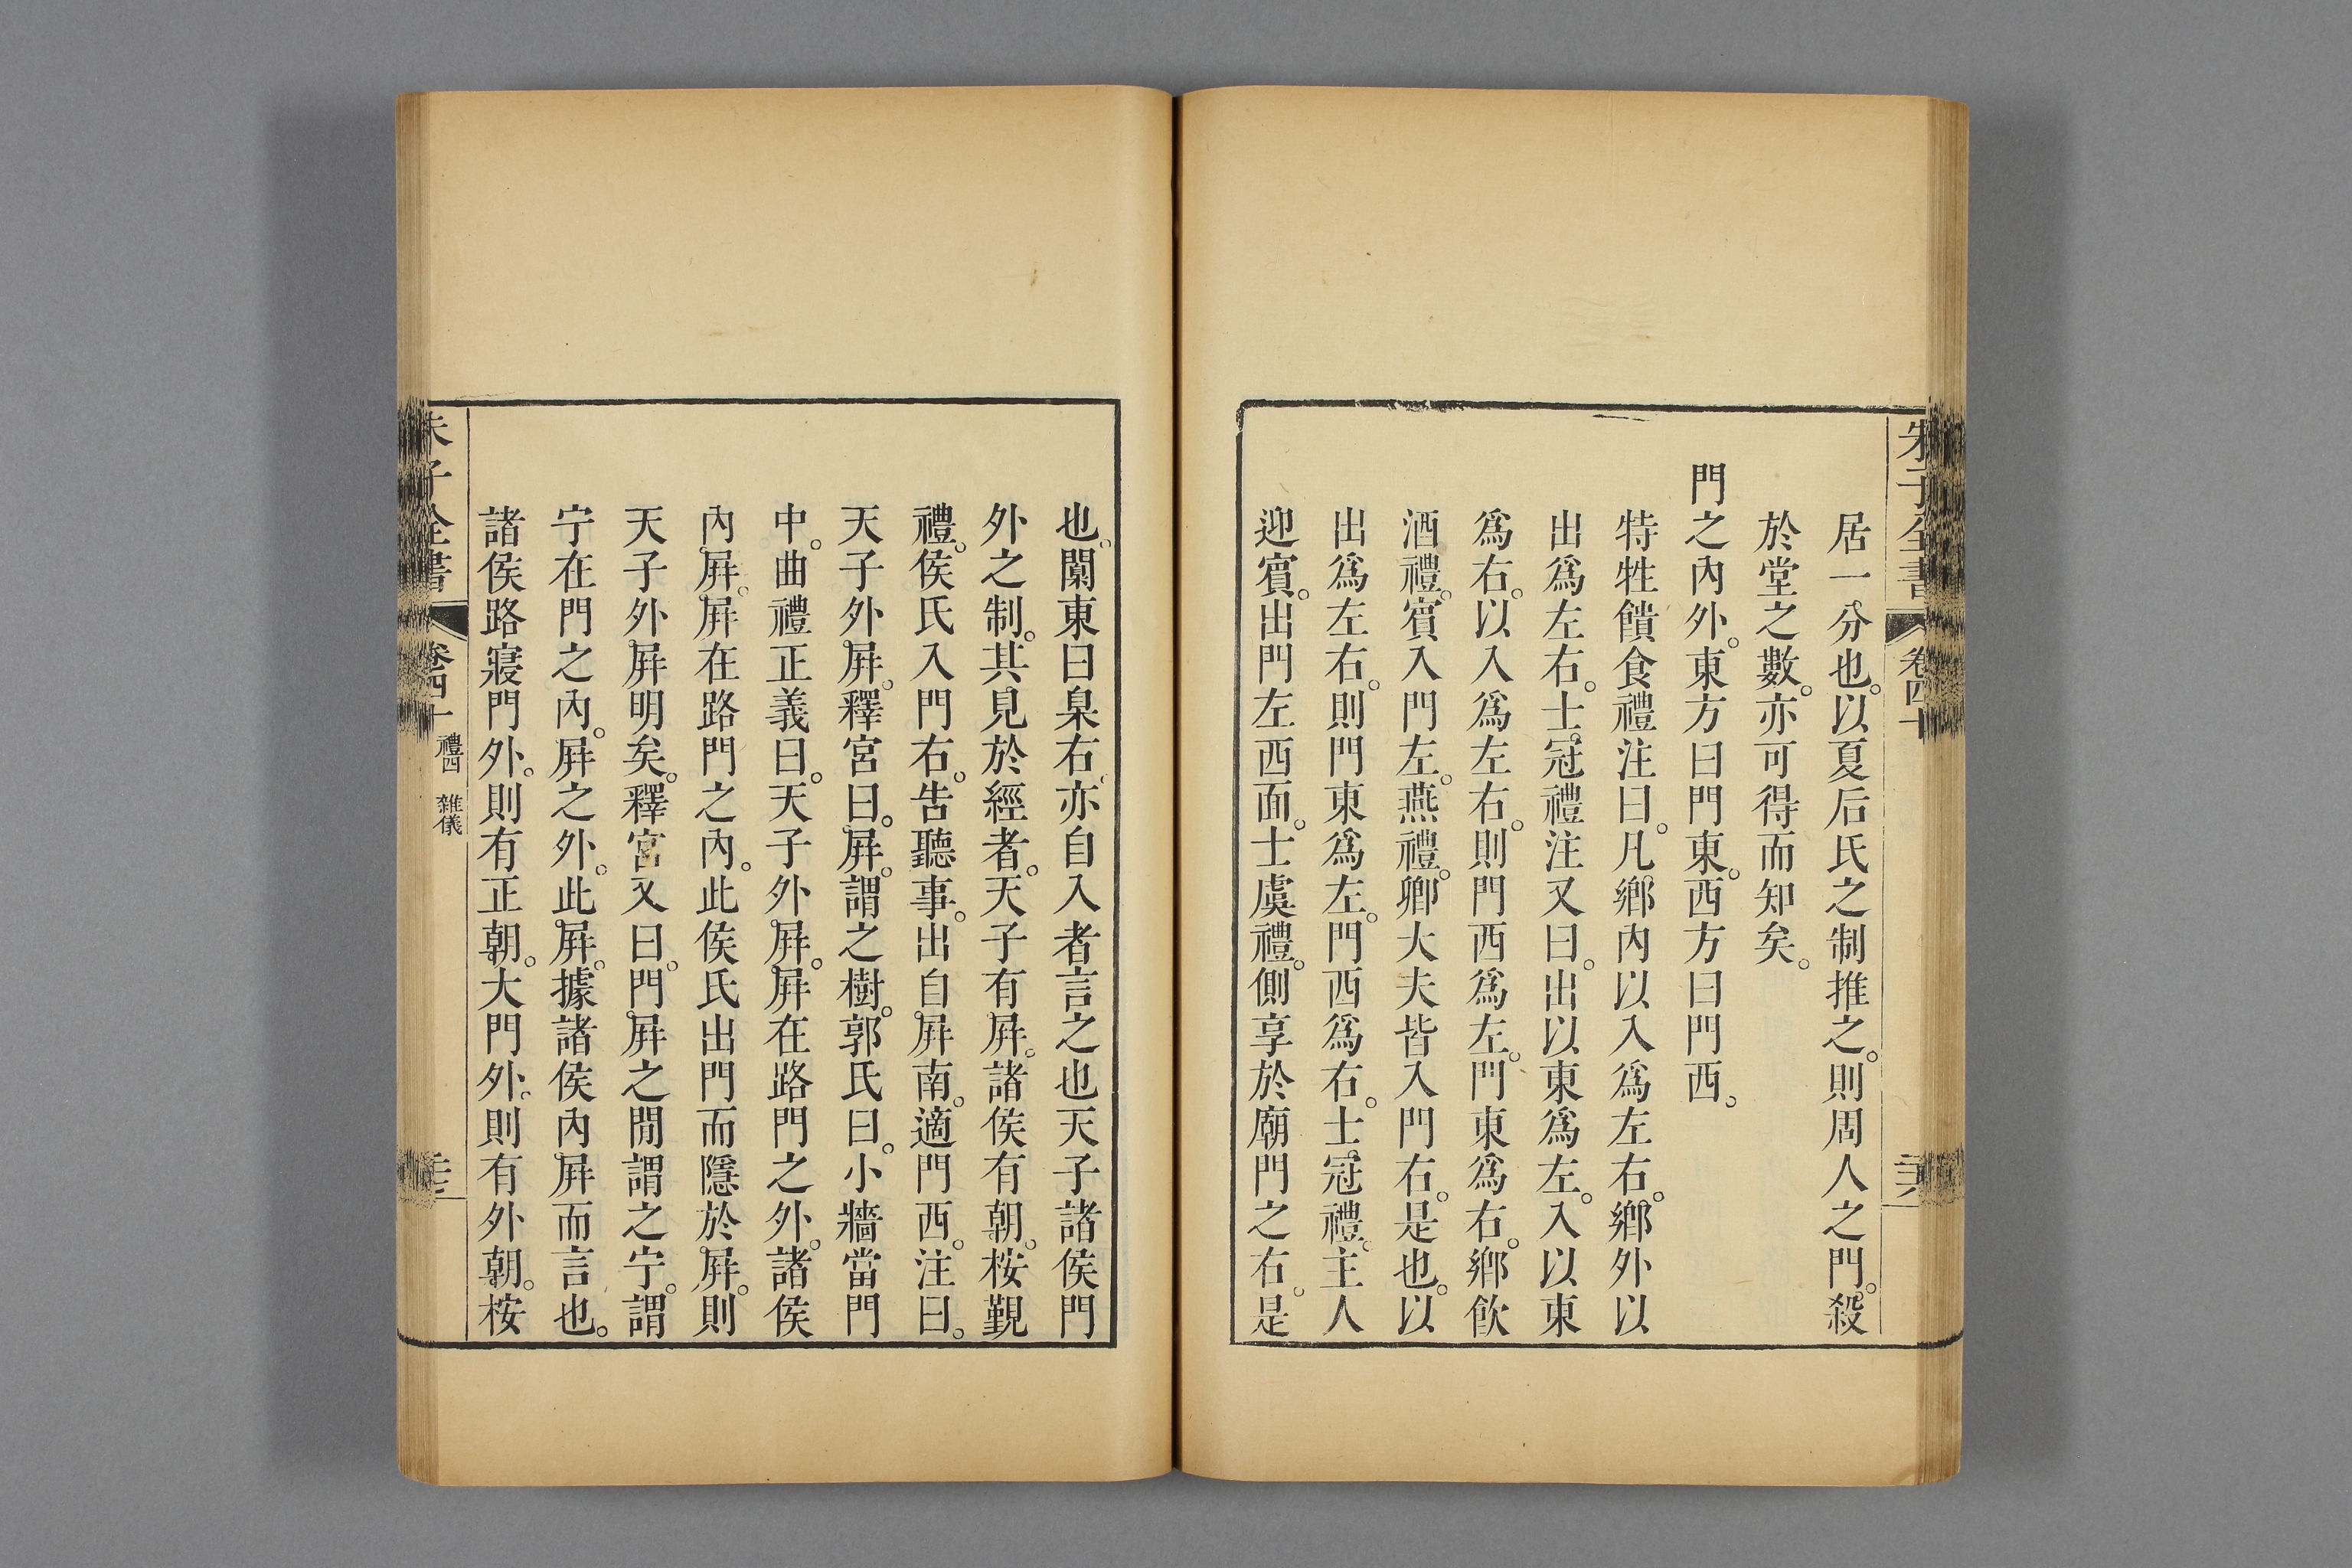 朱子全書 卷四十
居一分也。以夏后氏之制推之。則周人之門。殺
於堂之數。亦可得而知矣。
門之內外。東方曰門東。西方曰門西。
特牲饋食禮注曰。凡鄉內以入爲左右。鄉外以
出爲左右。士冠禮注又曰。出以東爲左。入以東
爲右。以入爲左右。則門西爲左。門東爲右。鄉飲
酒禮。賓入門左。燕禮。卿大夫皆入門右。是也。以
出爲左右。則門東爲左。門西爲右。士冠禮。主人
迎賓。出門左西面。士虞禮。側享於廟門之右。是
也。闑東曰臬右。亦自入者言之也天子諸侯門
外之制。其見於經者。天子有屛。諸侯有朝。桉覲
禮。侯氏入門右。告聽事。出自屛南。適門西。注曰。
天子外屛。釋宮曰。屛。謂之樹。郭氏曰。小牆當門
中。曲禮正義曰。天子外屛。屛在路門之外。諸侯
內屛。屛在路門之內。此侯氏出門而隱於屛。則
天子外屛明矣。釋宮又曰。門。屛之閒謂之宁。謂
宁在門之內。屛之外。此屛。據諸侯內屛而言也。
諸侯路寢門外。則有正朝。大門外。則有外朝。桉
朱子全書 卷四十 禮四 雜儀